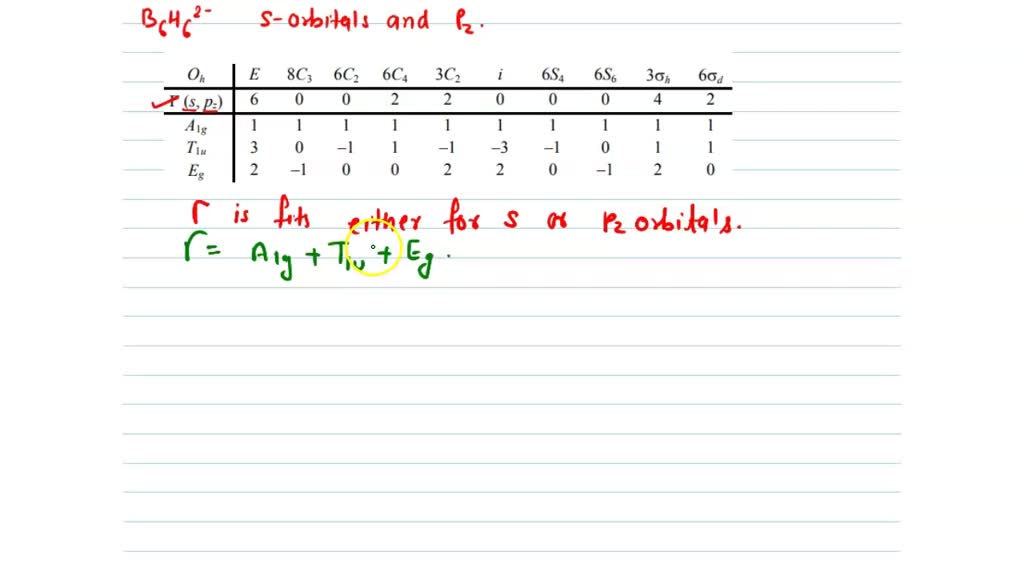 B6H6²⁻ s-orbitals and Pz.
Oh E 8C3 6C2 6C4 3C2 i 6S4 6S6 3σh 6σd
Γ (s, pz) 6 0 0 2 2 0 0 0 4 2
A1g 1 1 1 1 1 1 1 1 1 1
T1u 3 0 –1 1 –1 –3 –1 0 1 1
Eg 2 –1 0 0 2 2 0 –1 2 0
Γ is fits either for s or Pz orbitals.
Γ = A1g + T1u + Eg.